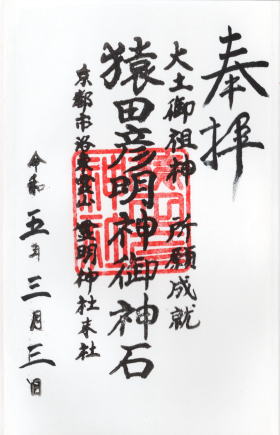 奉拝
大土御祖神 所願成就
猿田彦明神御神石
京都市洛東霊山 霊明神社末社
令和五年三月三日